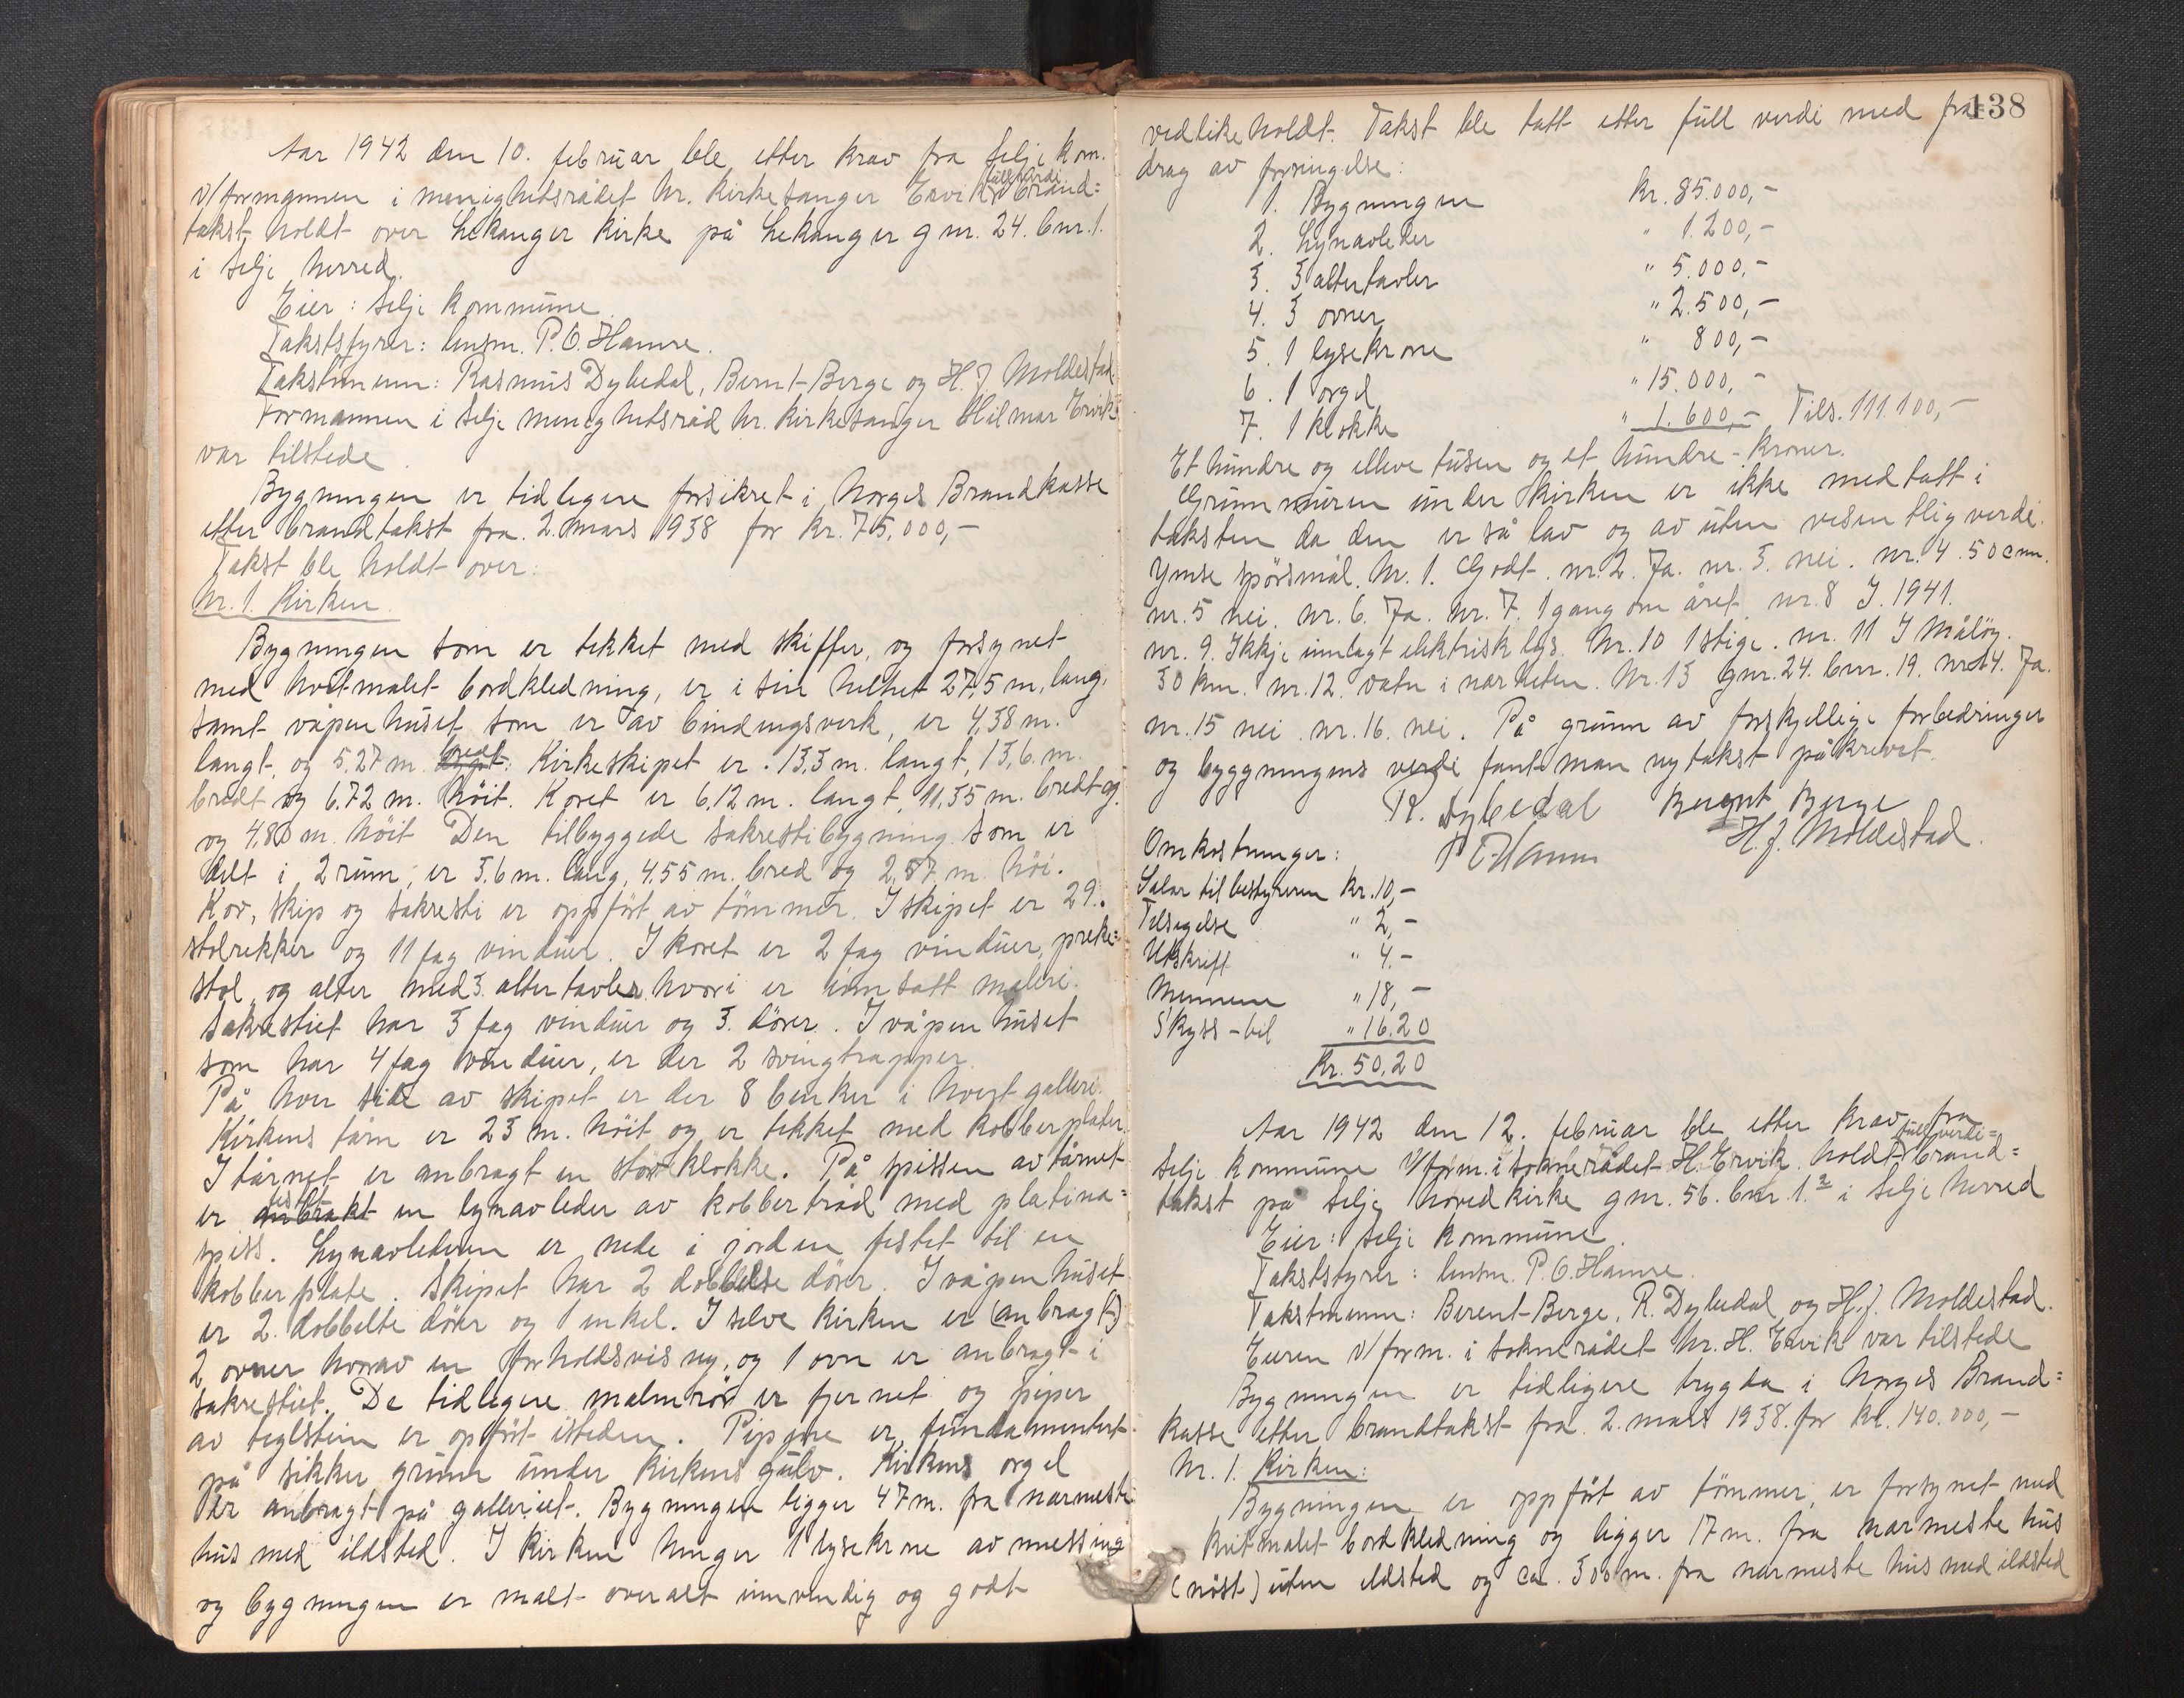 Aar 1942 den 10. februar ble etter krav fra Selje kom.
v/formannen i menighetsrådet hr. kirkesanger Ervik fullverdi brand=
takst holdt over Leikanger kirke på Leikanger gnr. 24. bnr. 1.
i Selje herred.
Eier: Selje kommune.
Takststyrer: lensm. P.O. Hamre.
Takstmenn: Rasmus Dybedal, Bernt Berge og H.J. Moldestad
Formannen i Selje menighetsråd hr. kirkesanger Hilmar Ervik
var tilstede.
Bygningen er tidligere forsikret i Norges Brandkasse
etter brandtakst fra 2. mars 1938 for kr. 75.000,-
Takst ble holdt over:
Nr. 1. Kirken.
Bygningen som er tekket med skiffer, og forsynet
med hvitmalet bordkledning, er i sin helhet 27,5 m. lang,
samt våpenhuset som er av bindingsverk, er 4,38 m.
langt, og 5,27 m. bredt. Kirkeskipet er 13,3 m. langt, 13,6 m.
bredt og 6,72 m. höit. Koret er 6,12 m. langt, 11,35 m. bredt og
og 4,80 m höit. Den tilbyggede sakrestibygning som er
delt i 2 rum, er 3,6 m. lang, 4,55 m. bred og 2,87 m. höi.
Kor, skip og sakresti er oppfört av tömmer. I skipet er 29.
stolrekker og 11 fag vinduer. I koret er 2 fag vinduer, preke=
stol og alter med 3 altertavler hvori er innsatt maleri.
Sakrestiet har 3 fag vinduer og 3. dörer. I våpenhuset
som har 4 fag vinduer, er der 2 svingtrapper.
På hver side av skipet er der 8 benker i hvert galleri.
Kirkens tårn er 23 m. höit og er tekket med kobberplater.
I tårnet er anbragt en stor klokke. På spissen av tårnet
er anbrakt festet en lynavleder av kobbertråd med platina=
spiss. Lynavlederen er nede i jorden festet til en
kobberplate. Skipet har 2 dobbelte dörer. I våpenhuset
er 2. dobbelte dörer og 1 enkel. I selve kirken er (anbragt)
2 ovner hvorav en forholdsvis ny, og 1 ovn er anbragt i
sakrestiet. De tidligere malmrör er fjernet og piper
av teglstein er opfört isteden. Pipene er fundamentert
på sikker grunn under kirkens gulv. Kirkens orgel
er anbragt på galleriet. Bygningen ligger 47 m. fra nærmeste
hus med ildsted. I kirken henger 1 lysekrone av messing
og bygningen er malt overalt innvendig og godt
138
vedlikeholdt. Takst ble tatt etter full verdi med fra=
drag av forringelse:
1. Bygningen kr. 85.000,-
2. Lynavleder " 1.200,-
3. 3 altertavler " 5.000,-
4. 3 ovner " 2.500,-
5. 1 lysekrone " 800,-
6. 1 orgel " 15.000,-
7. 1 klokke " 1.600,- Tils. 111.100,-
Et hundre og elleve tusen og et hundre - kroner.
Grunnmuren under kirken er ikke medtatt i
taksten da den er så lav og av uten vesentlig verdi.
Ymse spörsmål. Nr. 1. Godt. nr. 2. Ja. nr. 3. nei. nr. 4. 50 cm.
nr. 5 nei. nr. 6. Ja. nr. 7. 1 gang om året. nr. 8 I. 1941.
nr. 9. Ikkje innlagt elektrisk lys. Nr. 10 1 stige. nr. 11 I Målöy.
30 km. nr. 12. vatn i nærheten. Nr. 13 gnr. 24. bnr. 19. nr. 14. Ja.
nr. 15 nei. nr. 16. nei. På grunn av forskjellige forbedringer
og byggningens verdi fant man ny takst påkrevet.
R. Dybedal Berent Berge
P O Hamre H.J. Moldestad.
Omkostninger:
Salær til bestyreren kr. 10,-
Tilsigelse " 2,-
Utskrift " 4.-
Mennene " 18,-
Skyss - bil " 16.20
Kr. 50,20
Aar 1942 den 12. februar ble etter krav fra
Selje kommune v/form. i soknerådet H. Ervik holdt fullverdi= brand=
takst på Selje hovedkirke gnr. 56. bnr. 1.2 i Selje herred
Eier: Selje kommune.
Takststyrer: lensm. P.O. Hamre.
Takstmenn: Berent Berge, R. Dybedal og H.J. Moldestad.
Eieren v/form. i soknerådet hr. H. Ervik var tilstede
Bygningen er tidligere trygda i Norges Brand=
kasse etter brandtakst fra 2. mars 1938. for kr. 140.000,-
Nr. 1. Kirken:
Bygningen er oppfört av tömmer, er forsynet med
kvitmalet bordkledning og ligger 17 m. fra nærmeste hus
(nöst) uten ildsted og ca. 300 m. fra nærmeste hus med ildsted